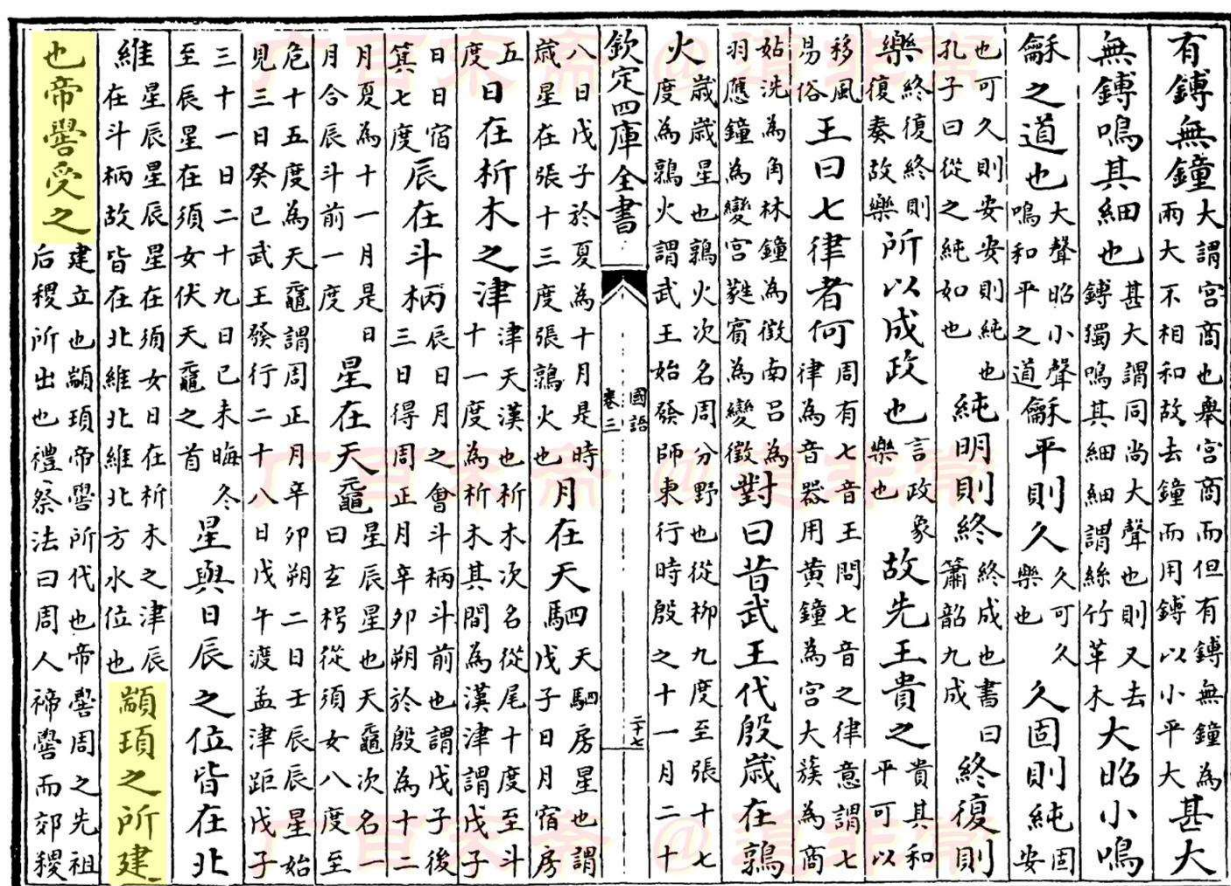 有鎛無鐘大謂宮商也舉宮商而但有鎛無鐘為兩大不相和故去鐘而用鎛以小平大甚大
無鎛鳴其細也甚大謂同尚大聲也則又去鎛獨鳴其細細謂絲竹革木大昭小鳴
龢之道也大聲昭小聲鳴和平之道龢平則久久可久樂也久固則純固安
也可久則安安則純也孔子曰從之純如也純明則終終成也書曰簫韶九成終復則
樂終復終則復奏故樂所以成政也言政象樂也故先王貴之貴其和平可以
移風易俗王曰七律者何周有七音王問七音之律意謂七律為音器用黄鐘為宮大蔟為商
姑洗為角林鐘為徵南呂為羽應鐘為變宮蕤賓為變徵對曰昔武王代殷歲在鶉
火歲歲星也鶉火次名周分野也從柳九度至張十七度為鶉火謂武王始發師東行時殷之十一月二十
欽定四庫全書
國語
卷三
二十七
八日戊子於夏為十月是時歲星在張十三度張鶉火也月在天駟天駟房星也謂戊子日月宿房
五度日在析木之津津天漢也析木次名從尾十度至斗十一度為析木其間為漢津謂戊子
日日宿箕七度辰在斗柄辰日月之會斗柄斗前也謂戊子後三日得周正月辛卯朔於殷為十二
月夏為十一月是日月合辰斗前一度星在天黿星辰星也天黿次名一曰玄枵從須女八度至
危十五度為天黿謂周正月辛卯朔二日壬辰辰星始見三日癸巳武王發行二十八日戊午渡孟津距戊子
三十一日二十九日己未晦冬至辰星在須女伏天黿之首星與日辰之位皆在北
維星辰星辰星在須女日在析木之津辰在斗柄故皆在北維北維北方水位也顓頊之所建
也帝嚳受之建立也顓頊帝嚳所代也帝嚳周之先祖后稷所出也禮祭法曰周人禘嚳而郊稷